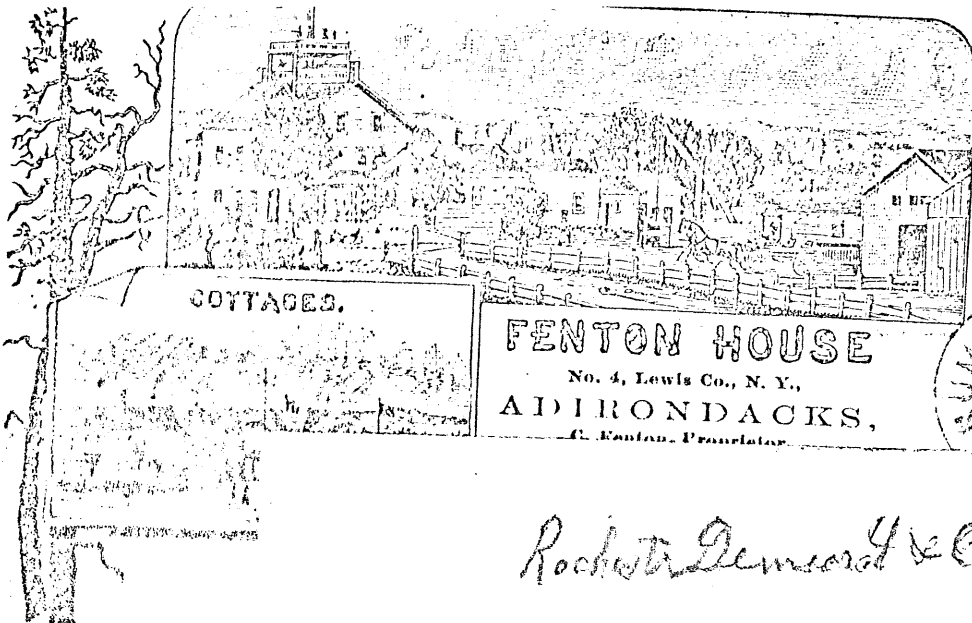 COTTAGES.
FENTON HOUSE
No. 4, Lewis Co., N. Y.,
ADIRONDACKS,
C. Fenton, Proprietor.
Rochester Democrat &